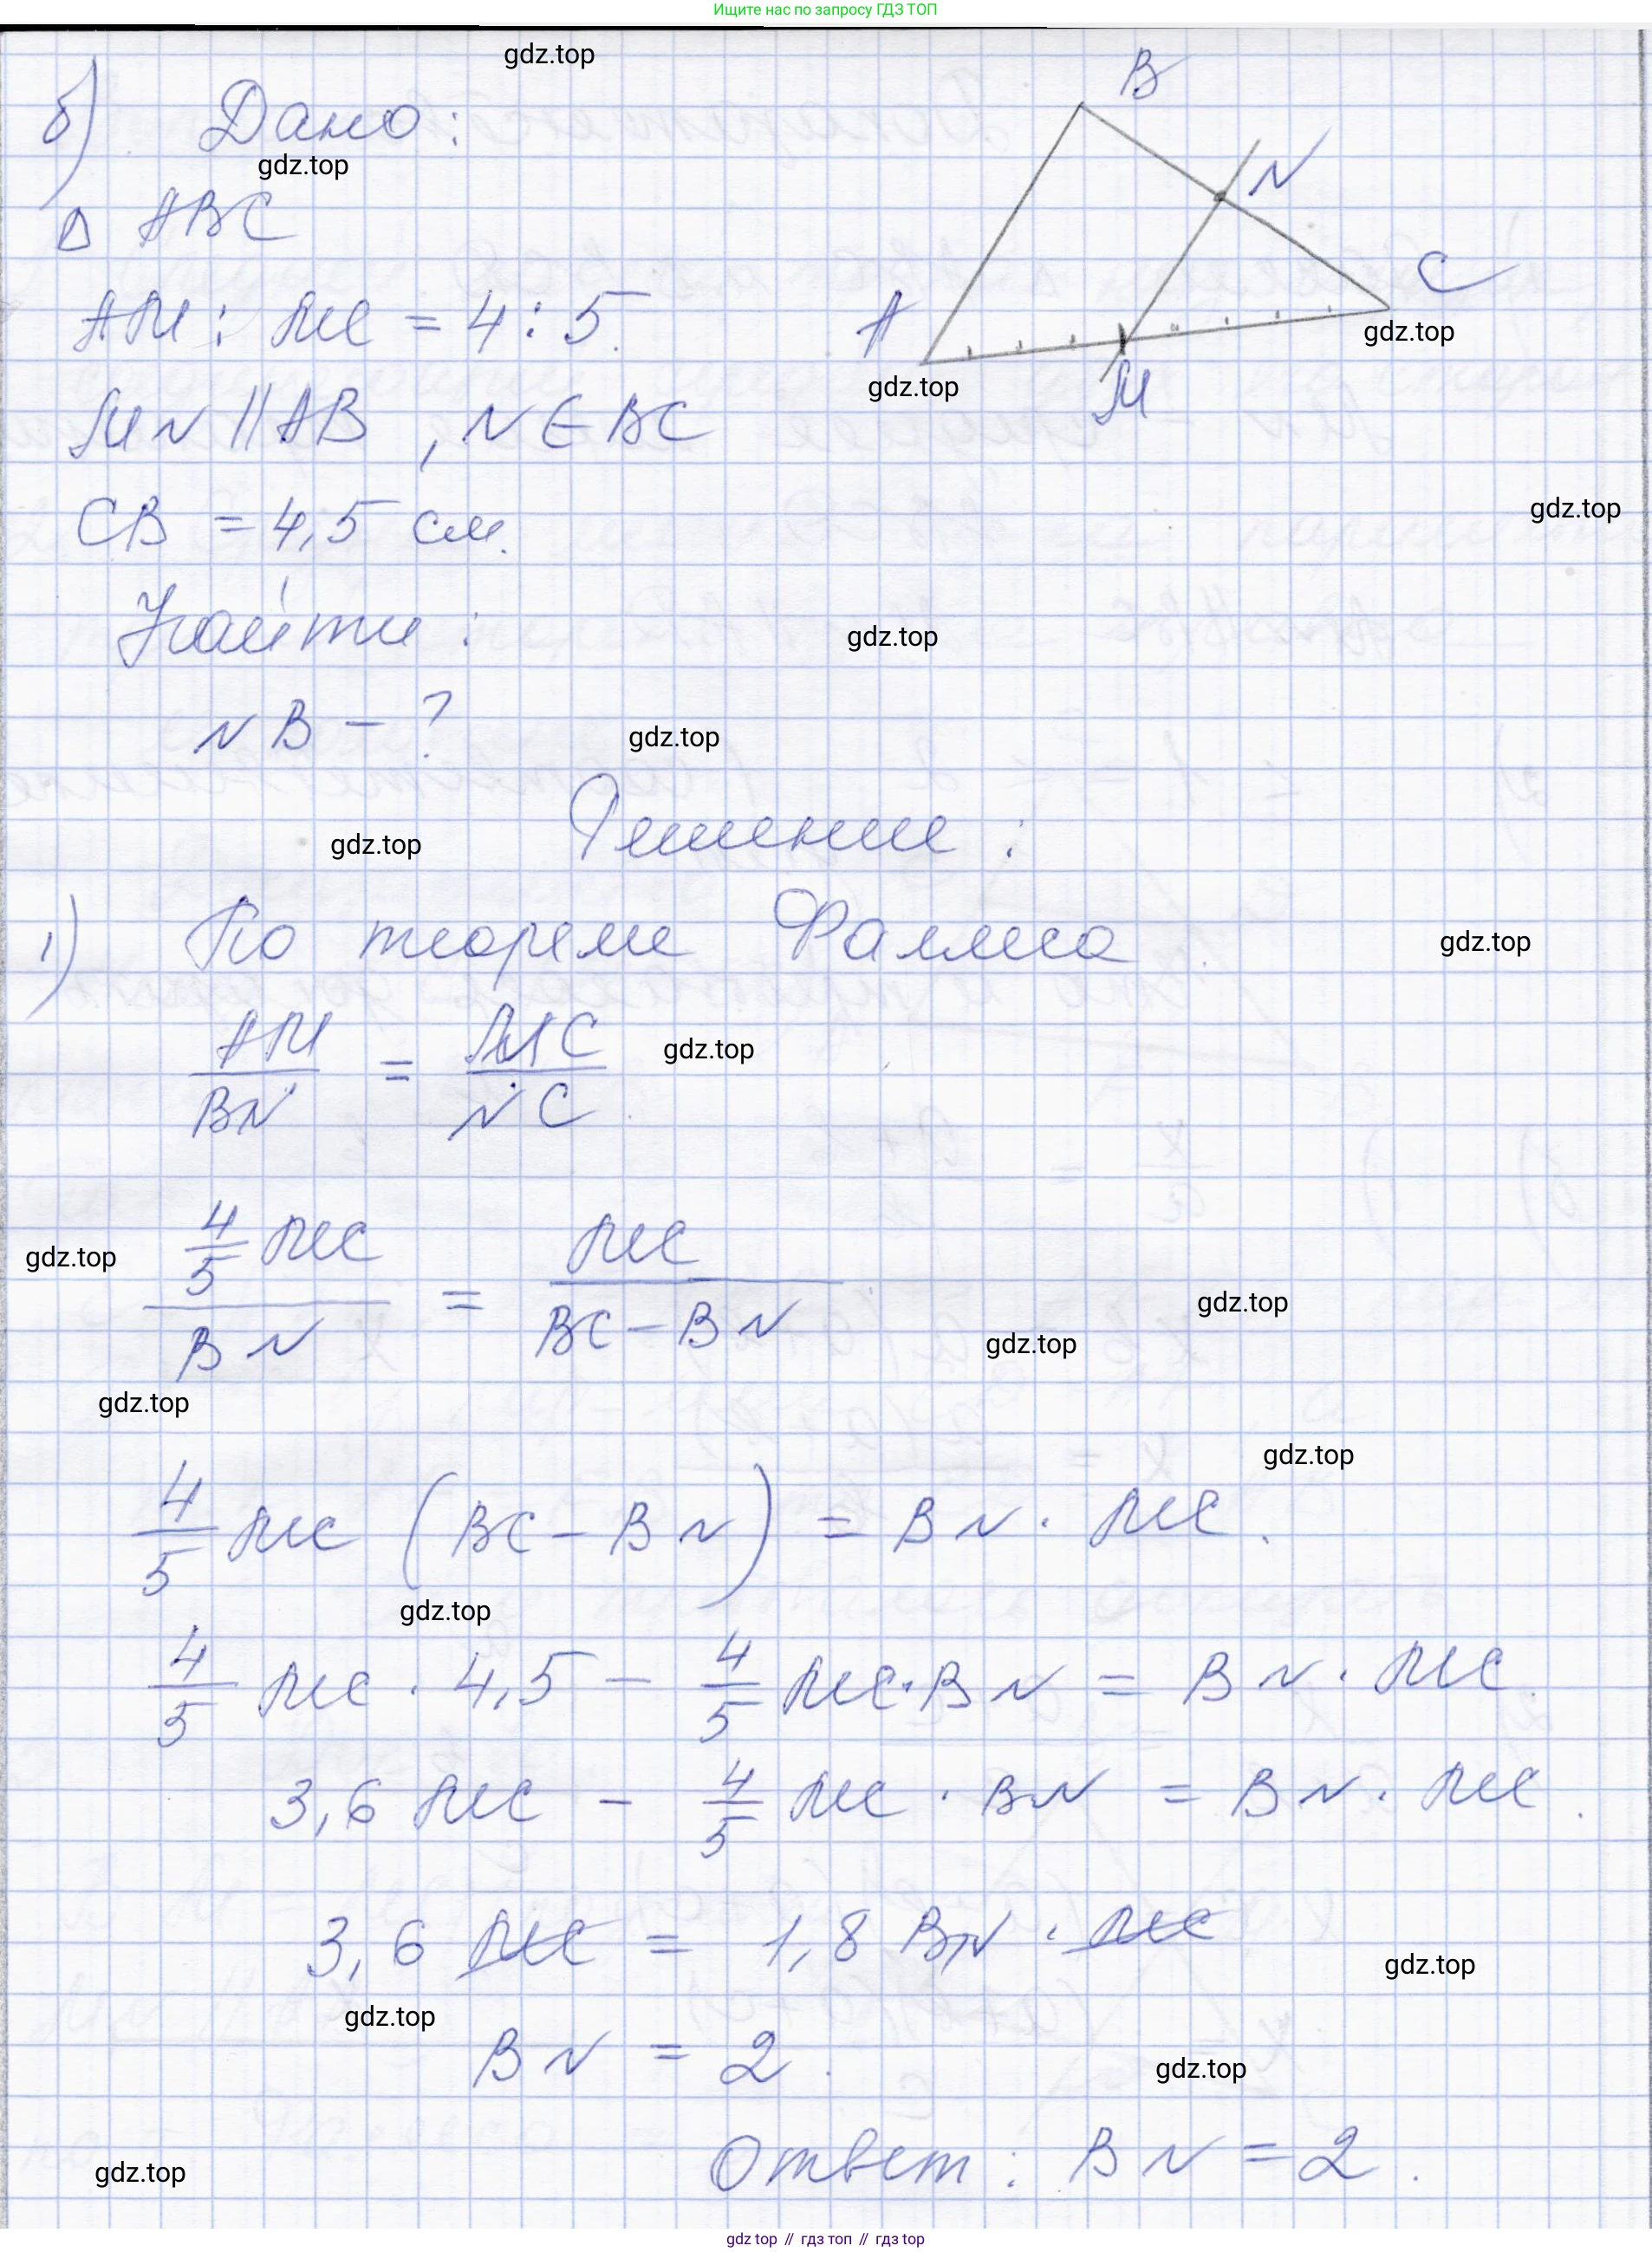 Ищите нас по запросу ГДЗ ТОП
gdz.top
б) Дано:
gdz.top
Δ ABC
AM : MC = 4 : 5.
MN || AB, N ∈ BC
CB = 4,5 см.
Найти:
NB - ?
B
N
C
A
M
gdz.top
gdz.top
gdz.top
gdz.top
gdz.top
Решение:
gdz.top
1) По теореме Фалеса
gdz.top
AM/BN = MC/NC.
gdz.top
4/5 MC / BN = MC / BC - BN
gdz.top
gdz.top
gdz.top
gdz.top
gdz.top
4/5 MC (BC - BN) = BN · MC.
gdz.top
4/5 MC · 4,5 - 4/5 MC · BN = BN · MC
3,6 MC - 4/5 MC · BN = BN · MC.
3,6 MC = 1,8 BN · MC
gdz.top
gdz.top
BN = 2.
gdz.top
Ответ: BN = 2.
gdz.top
gdz top // гдз топ // гдз top